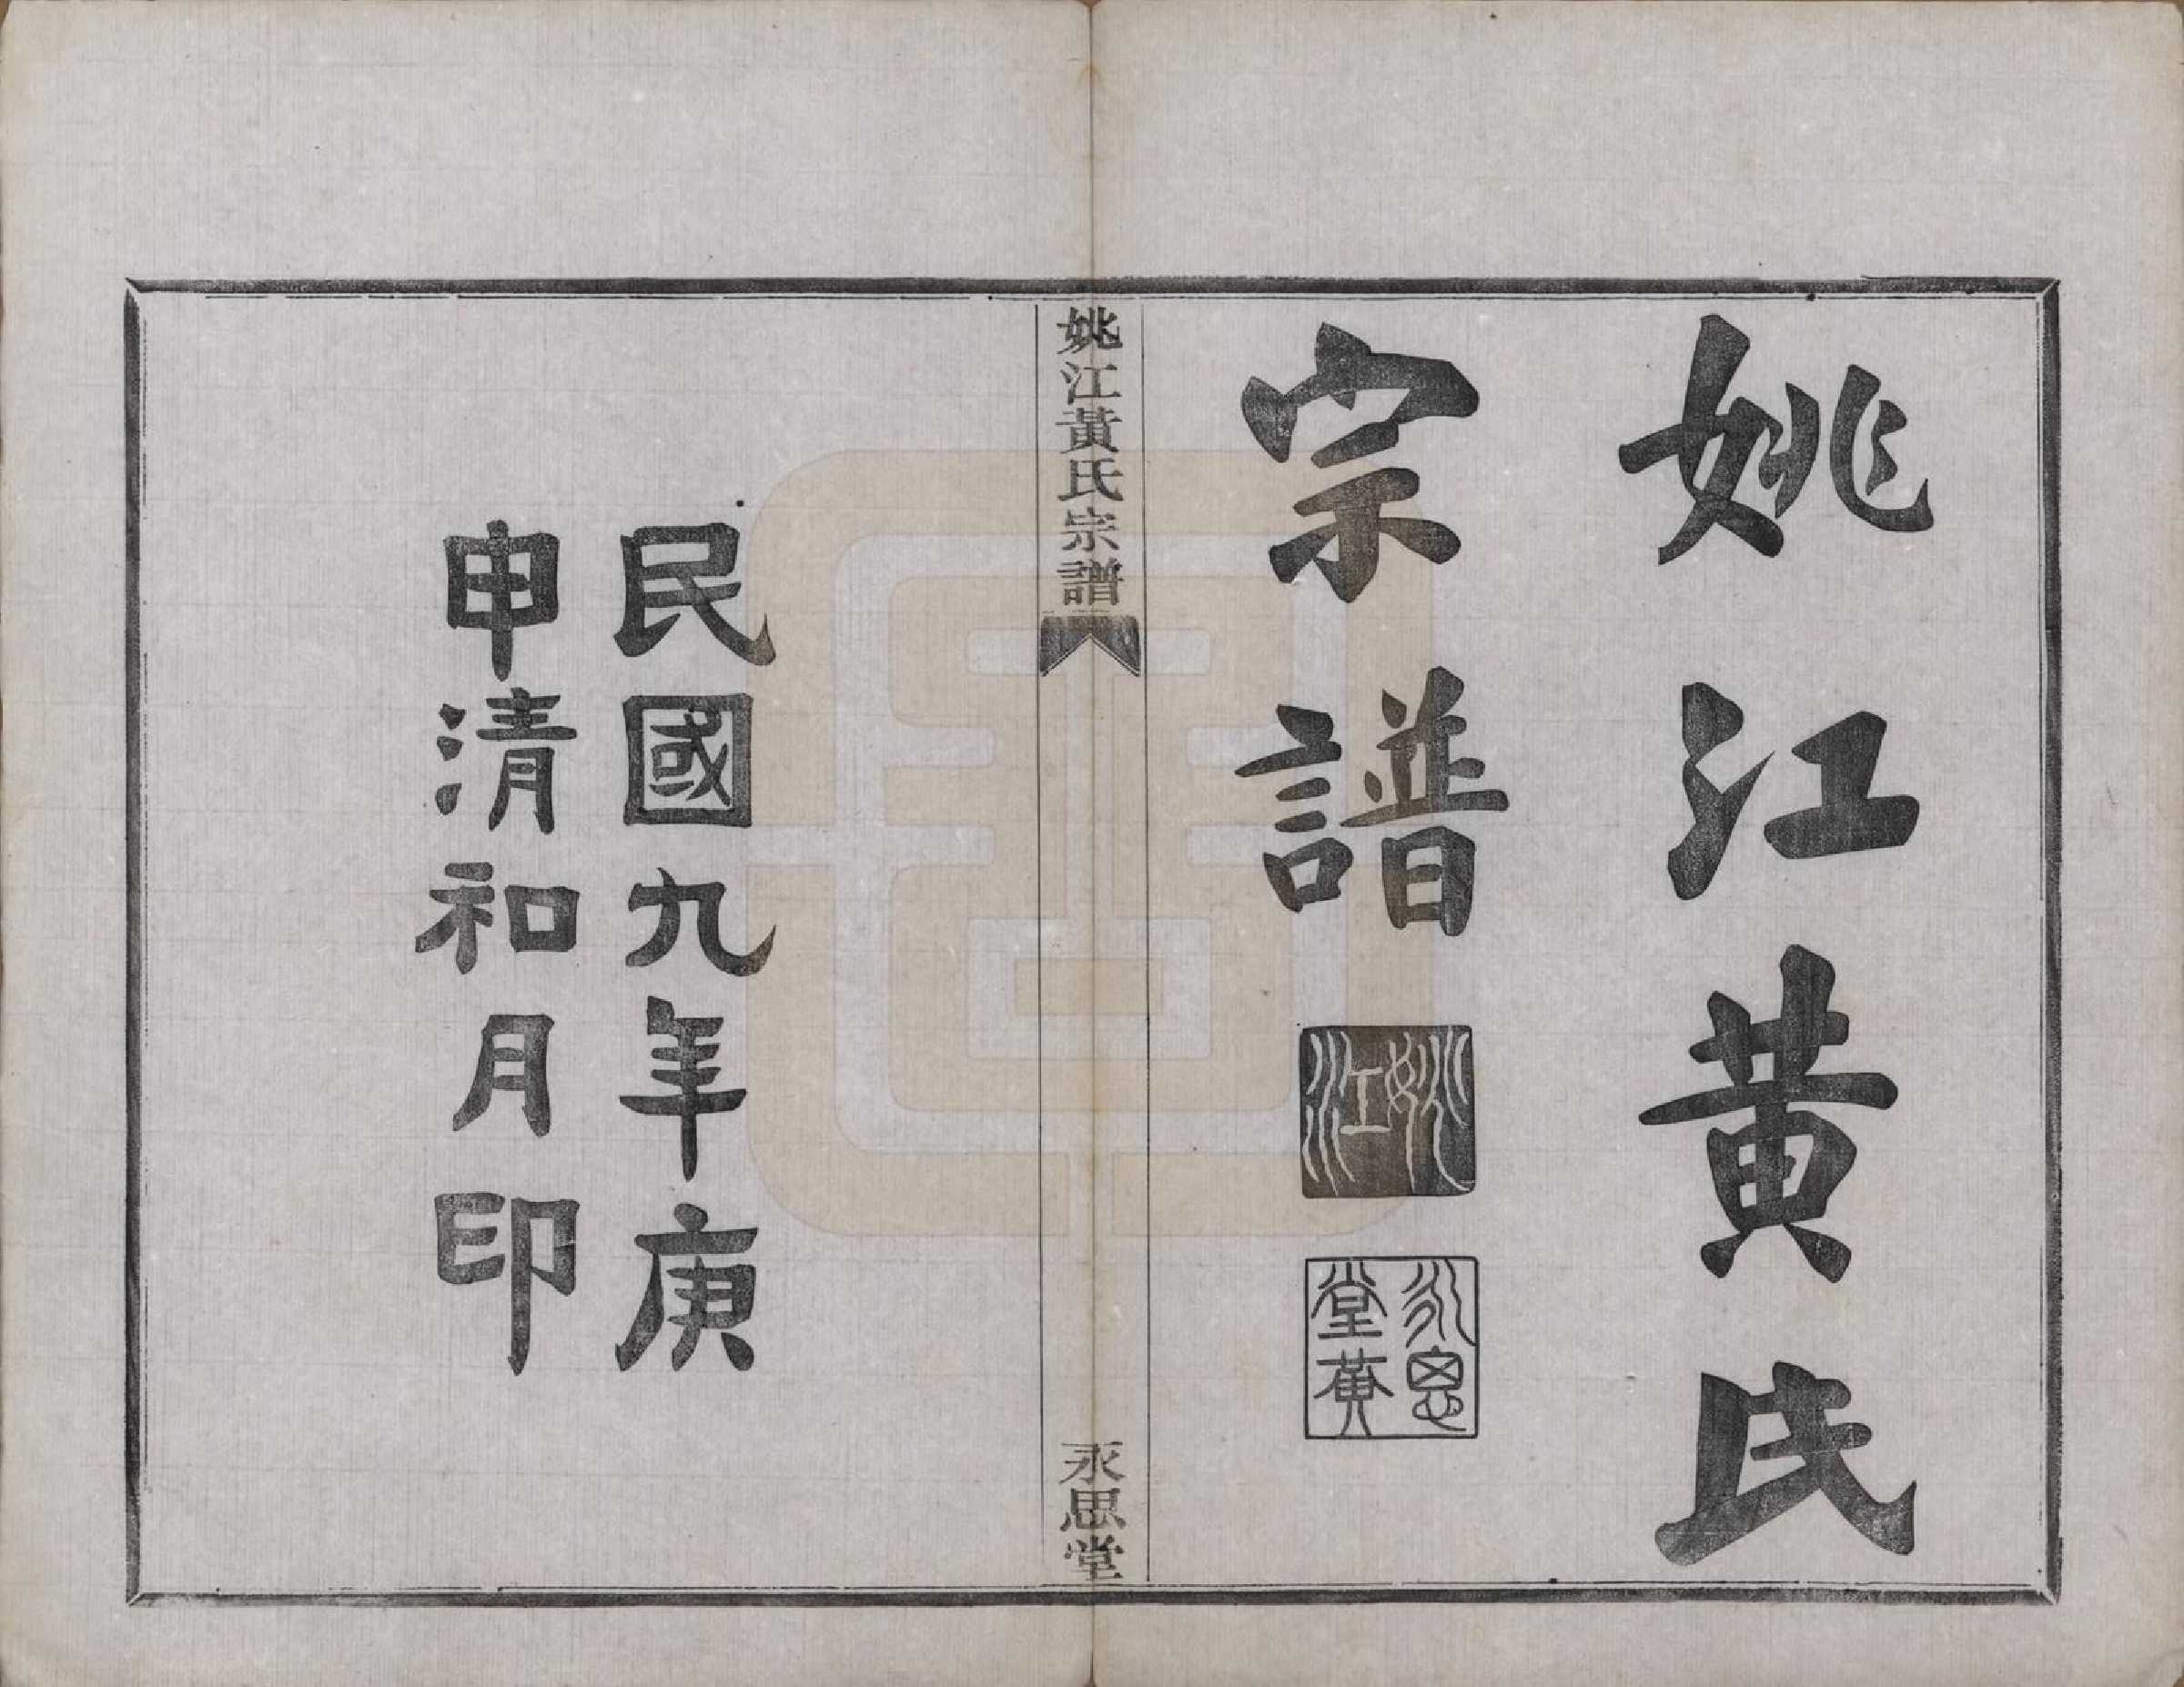 姚江黄氏
宗譜
姚江
永思堂黄
姚江黄氏宗譜
永思堂
民國九年庚
申清和月印